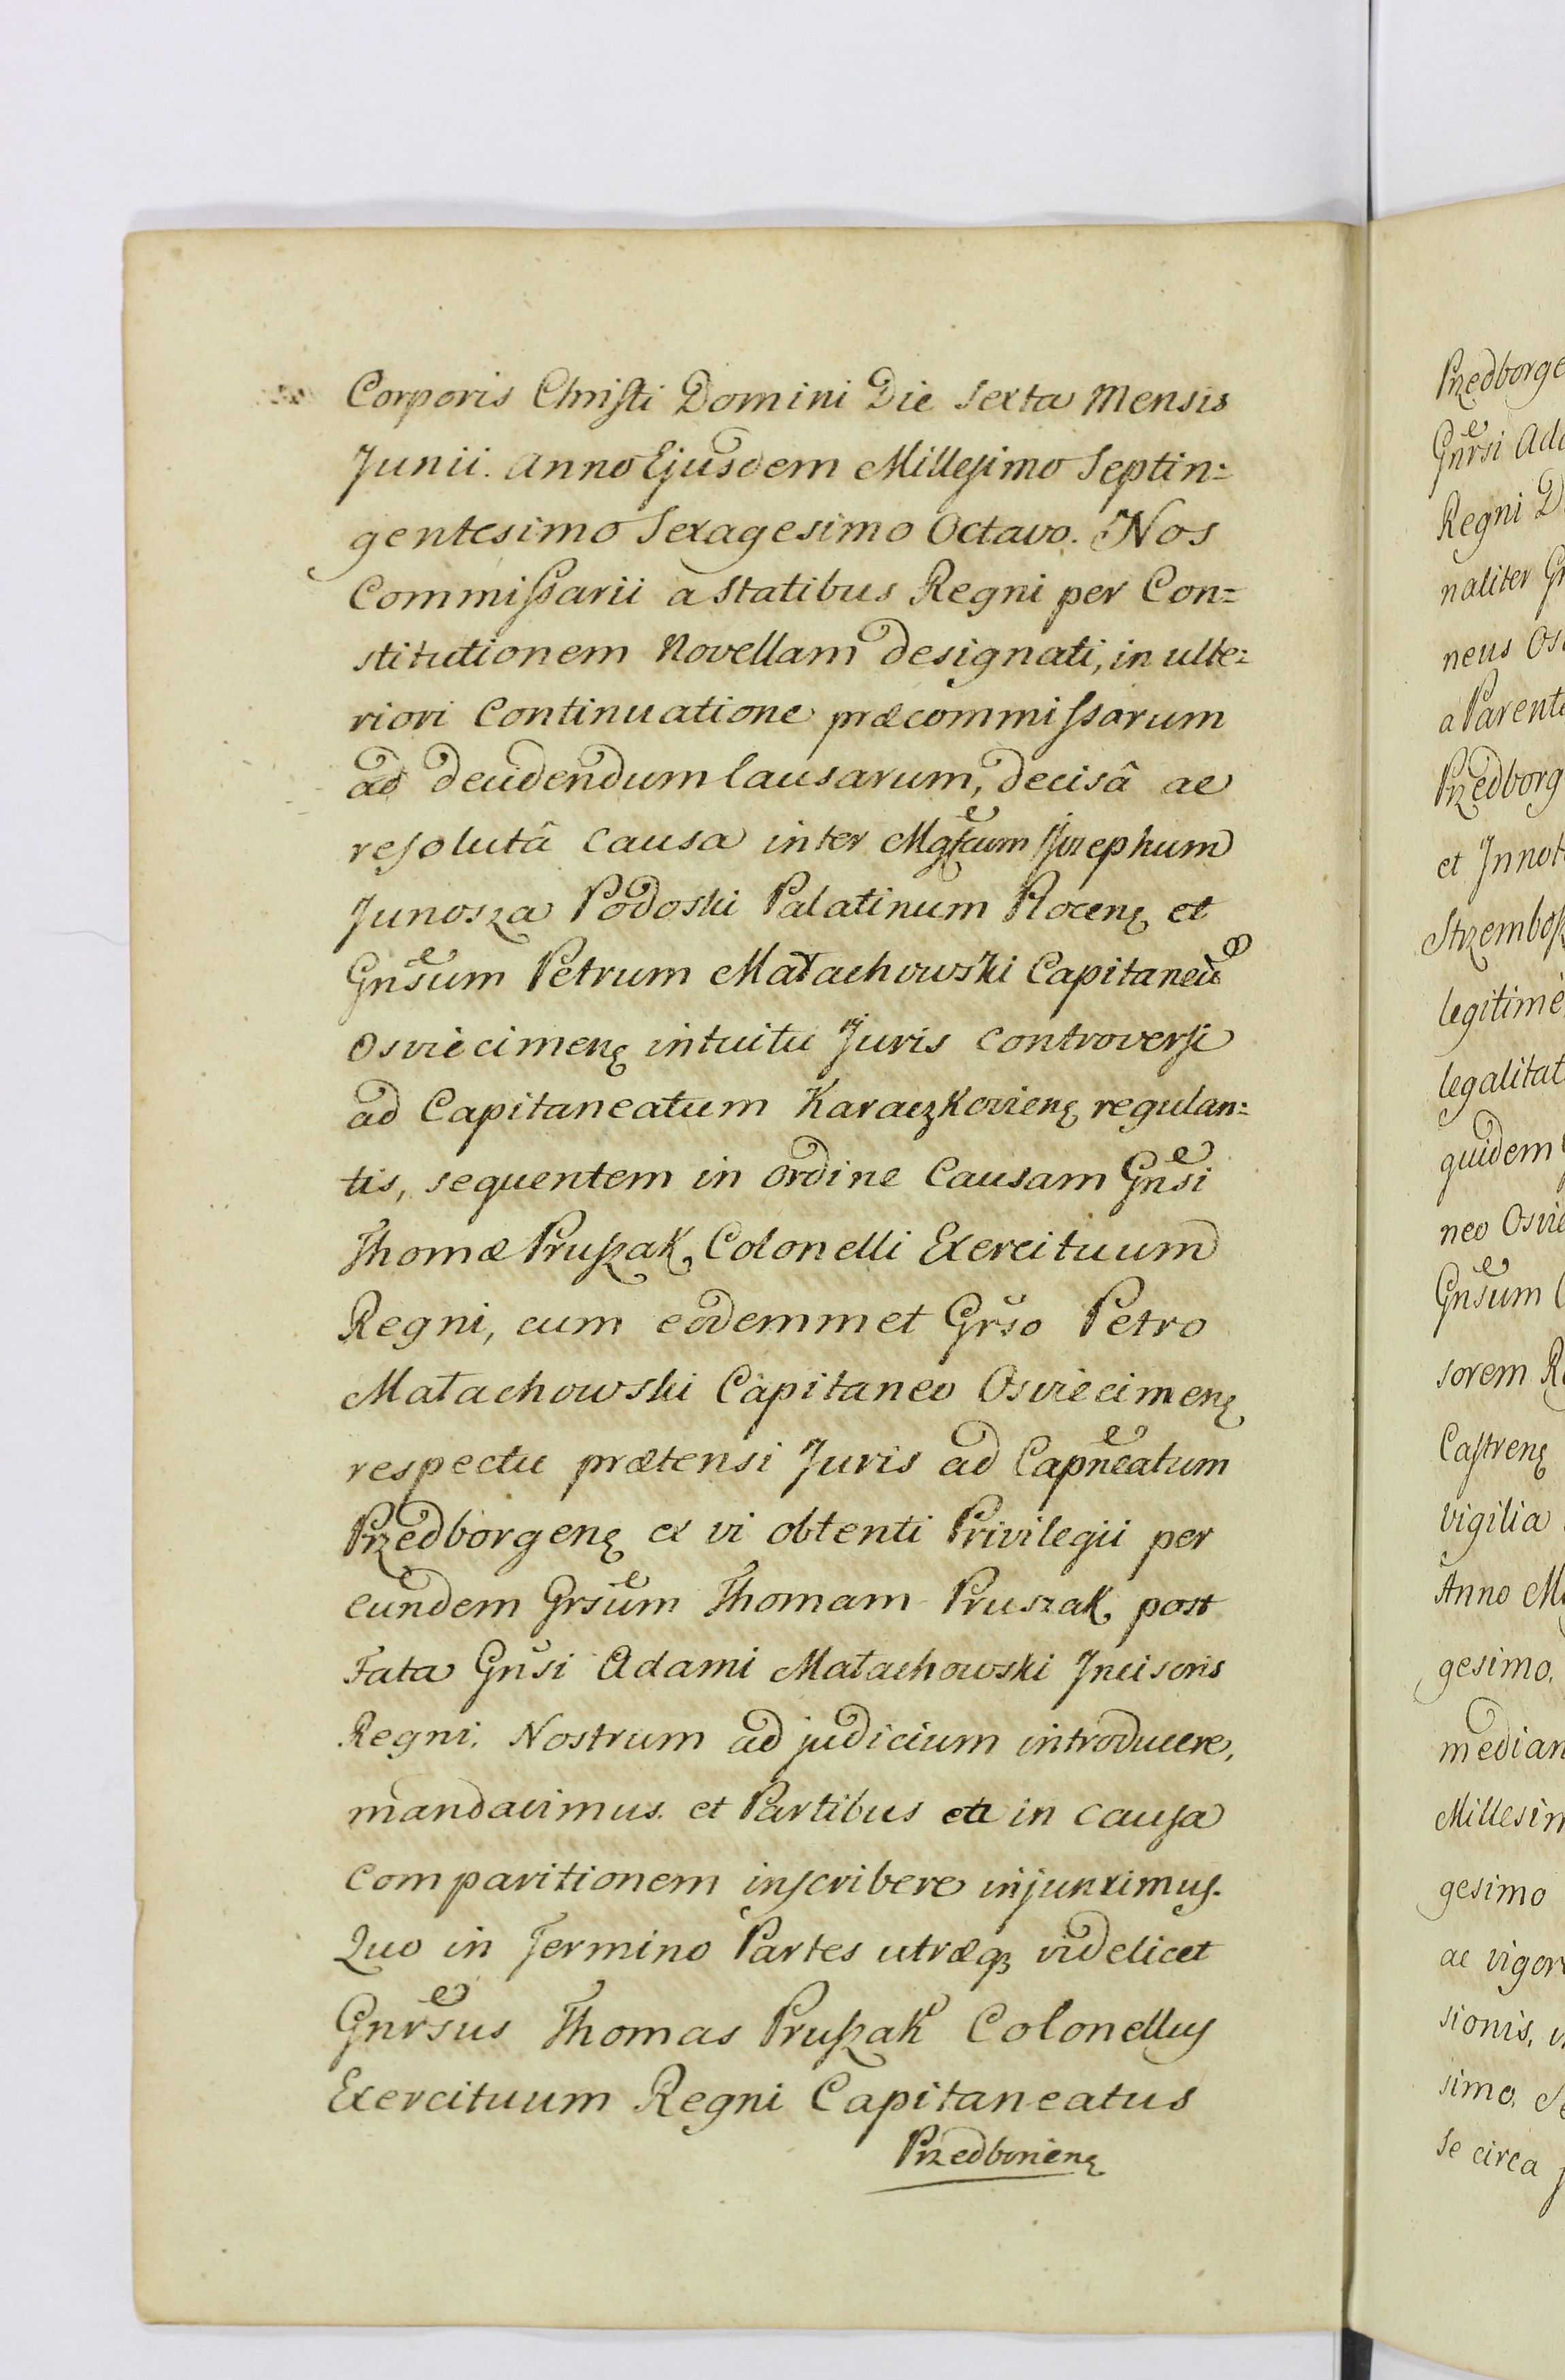 Corporis Christi Domini Die Sexta Mensis
Junii. Anno Ejusdem Millesimo Septin=
gentesimo Sexagesimo Octavo. Nos
Commissarii a Statibus Regni per Con=
stitutionem Novellam designati, in ulte=
riori Continuatione præcommissarum
ad decidendum Causarum, decisâ ac
resolutâ Causa inter Mgfcum Jozephum
Junosza Podoski Palatinum Plocenę et
Gnsum Petrum Małachowski Capitaneū
Osviecimenę intuitu Juris controversi
ad Capitaneatum Karaczkovienę regulan=
tis, sequentem in ordine Causam Gnsi
Thomæ Pruszak, Colonelli Exercituum
Regni, cum eodemmet Grso Petro
Małachowski Capitaneo Osviecimenę
respectu prætensi Juris ad Capneatum
Przedborgenę ex vi obtenti Privilegii per
eundem Grsum Thomam Pruszak, post
Fata Gnsi Adami Małachowski Incisoris
Regni. Nostrum ad judicium introducere,
mandavimus. et Partibus ea in causa
comparitionem inscribere injunximus.
Quo in Termino Partes utræqꝫ videlicet
Gnrsus Thomas Pruszak Colonellus
Exercituum Regni Capitaneatus
Przedborienę
Przedborge
Gnrsi Ada
Regni D
naliter Gn
neus Os
a Parente
Przedborg
et Innot
Strzembosz
legitime
legalitat
quidem
neo Osvie
Gnsum
sorem Re
Castrenę
vigilia
Anno Mi
gesimo.
median
Millesim
gesimo
ac vigor
sionis,
simo. Se
se circa